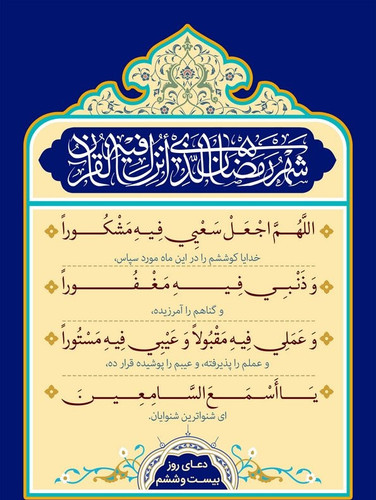 شهر رمضان الذي أنزل فيه القرآن
اللَّهُمَّ اجْعَلْ سَعْيِي فِيهِ مَشْكُوراً
خدایا کوششم را در این ماه مورد سپاس،
وَ ذَنْبِي فِيهِ مَغْفُوراً
و گناهم را آمرزیده،
وَ عَمَلِي فِيهِ مَقْبُولاً وَ عَيْبِي فِيهِ مَسْتُوراً
و عملم را پذیرفته، و عیبم را پوشیده قرار ده،
يَا أَسْمَعَ السَّامِعِينَ
ای شنواترین شنوایان.
دعای روز
بیست و ششم